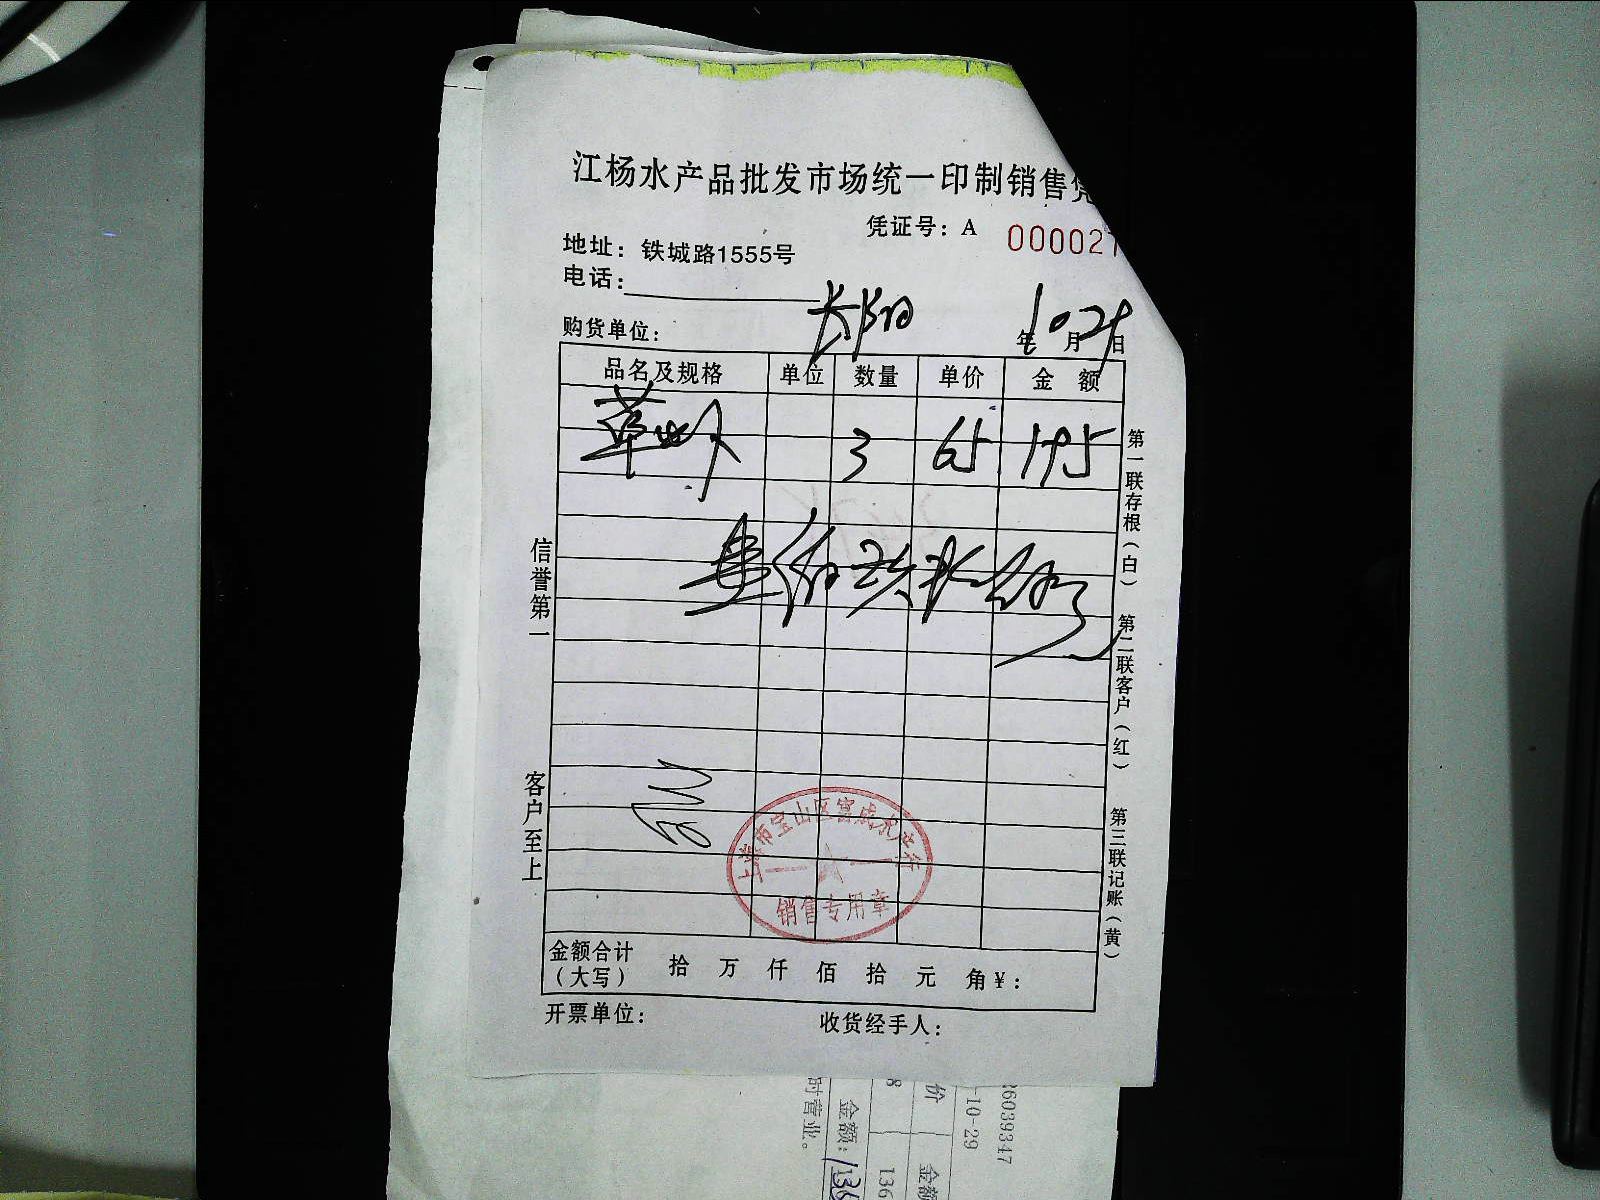 江杨水产品批发市场统一印制销售凭
凭证号：A 000027
地址：铁城路1555号
电话：
购货单位：
年 10 月 29 日
品名及规格 单位 数量 单价 金额
草虾 3 65 195
信誉第一
客户至上
第一联存根（白） 第二联客户（红） 第三联记账（黄）
上海市宝山区富成水产行
销售专用章
金额合计（大写） 拾 万 仟 佰 拾 元 角 ¥：
开票单位： 收货经手人：
26039347
-10-29
价 金额
8 136
金额：136
时营业。